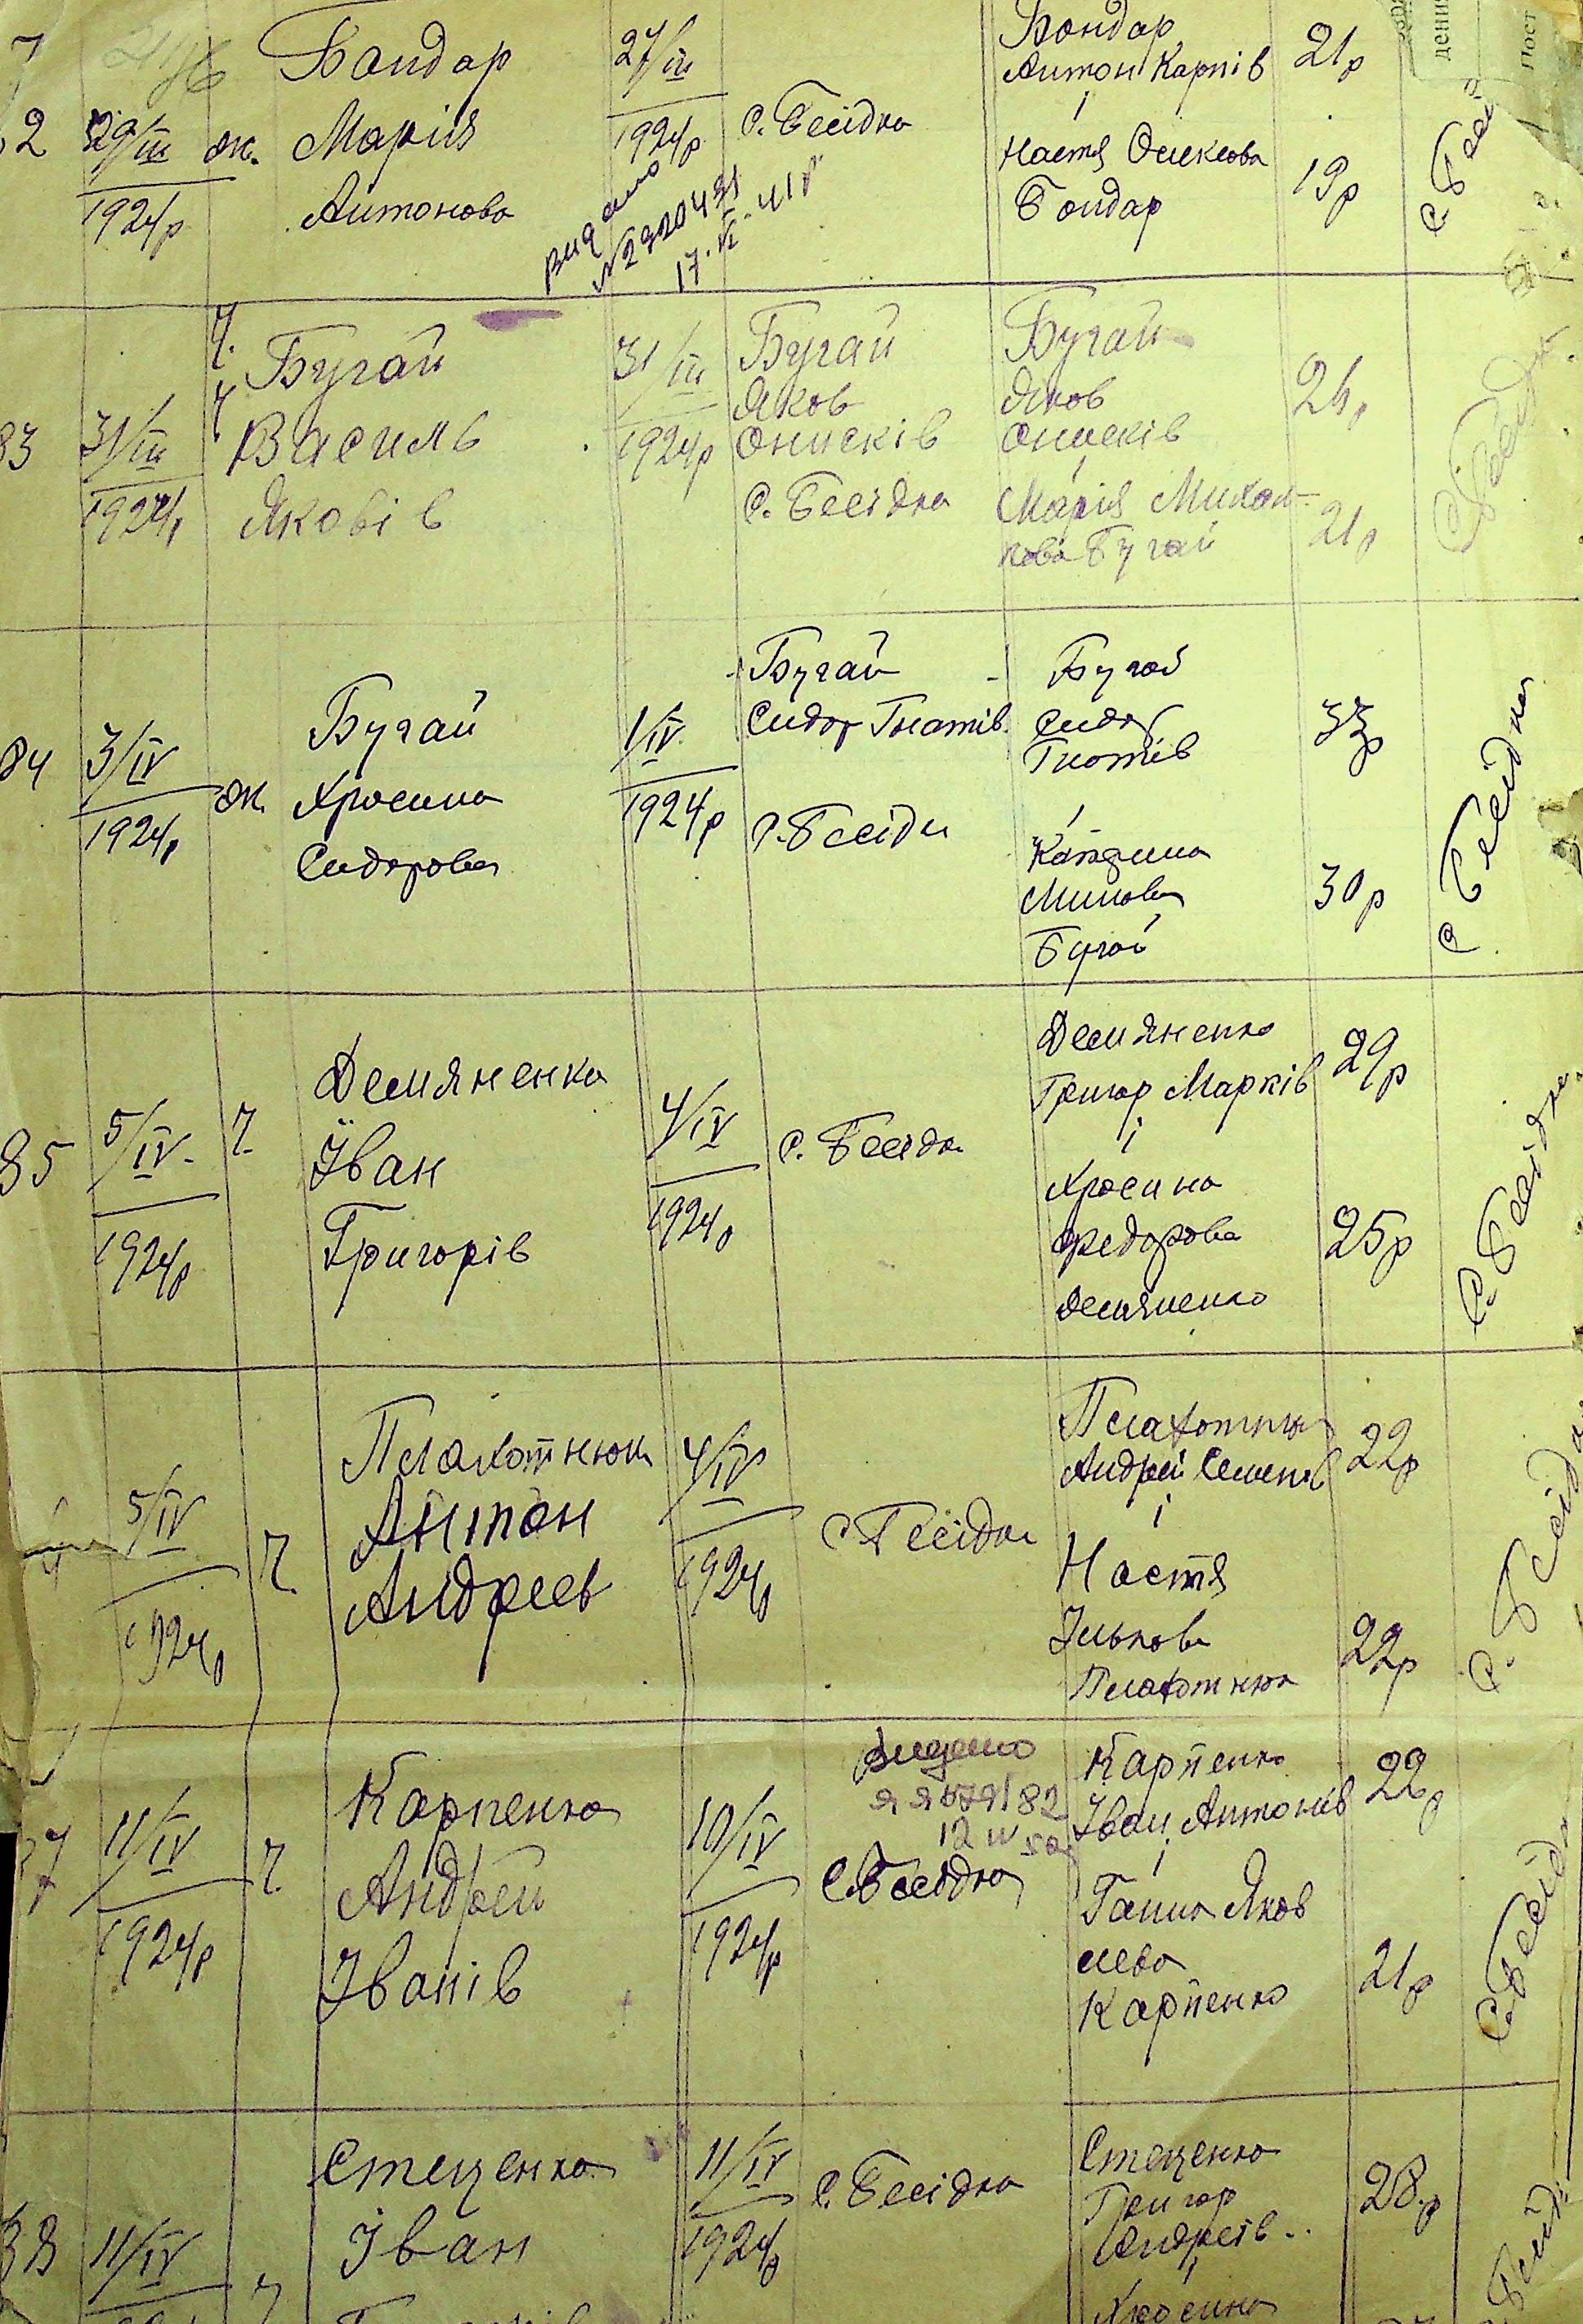 Бондар
Марія
Антонова
29/III
1924р
ж.
27/III
1924р
видано
17.VI.41р
с. Бесідка
Бондар
Антон Карпів
і
Настя Олексова
Бондар
21р
19р
83
31/III
1924р
ч.
Бугай
Василь
Яковів
31/III
1924р
Бугай
Яков
Онисків
с. Бесідка
Бугай
Яков
Онисків
і
Марія Михал-
кова Бугай
21р
с. Бесідка
84
3/IV
1924р
ж.
Бугай
Хросина
Сидорова
1/IV
1924р
Бугай
Сидор Гнатів
с. Бесідка
Бугай
Сидор
Гнатів
і
Минова
Бугай
33р
30р
с Бесідка
85
5/IV.
1924р
ч.
Демяненко
Іван
Григорів
4/IV
1924р
с. Бесідка
Демяненко
Григор Марків
і
Хросина
Федорова
Демяненко
29р
25р
с. Бесідка
5/IV
1924р
ч.
Плахотнюк
Антон
Андреев
4/IV
1924р
с Бесідка
Плахотнюк
Андрей Семенів
і
Настя
Ількова
Плахотнюк
22р
22р
с. Бесідка
11/IV
1924р
ч.
Карпенко
Андрей
Іванів
10/IV
1924р
Видано
с. Бесідка
Карпенко
Іван Антонів
і
Ганна Яков
лева
Карпенко
22р
21р
с. Бесідка
88
11/IV
Стеценко
Іван
11/IV
1924р
с. Бесідка
Стеценко
Григор
Андреів
і
Хросина
28р